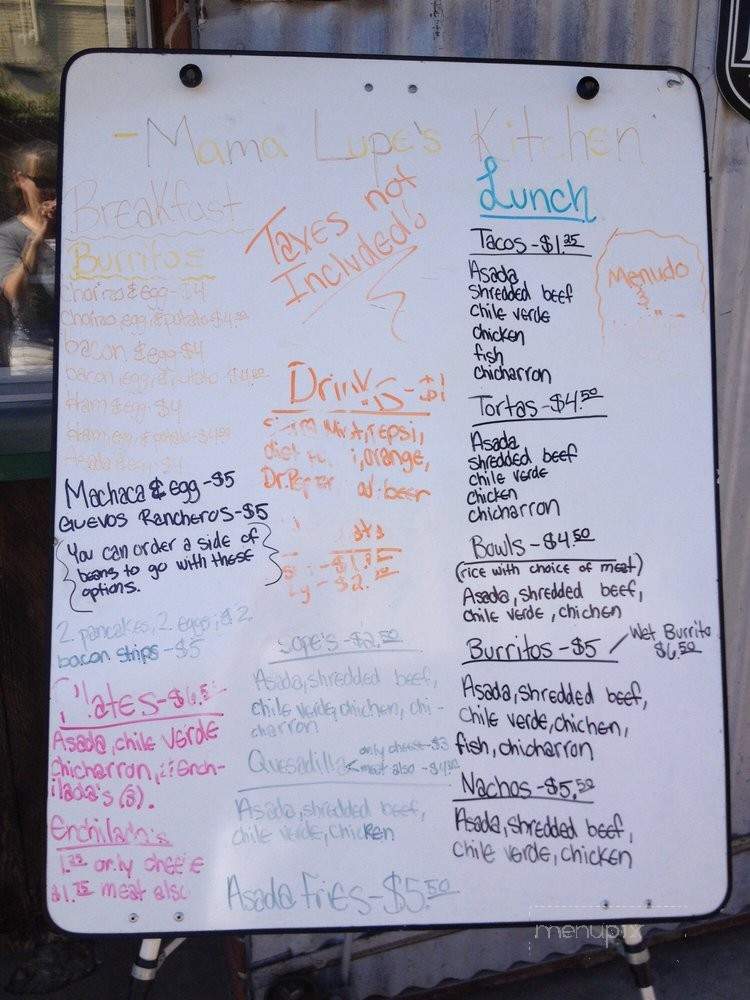 -Mama Lupe's Kitchen
Breakfast
Burritos
chorizo & egg-$4
chorizo, egg, & potato-$4.50
bacon & egg-$4
bacon, egg, & potato-$4.50
Ham & egg-$4
Ham, egg, & potato-$4.50
Asada & egg-$4
Machaca & egg-$5
Guevos Rancheros-$5
You can order a side of
beans to go with these
options.
2 pancakes, 2 eggs, & 2
bacon strips-$5
Plates-$6.5
Asada, chile verde
chicharron, Ench-
ilada's (3).
Enchilada's
1.25 only cheese
$1.75 meat also
Taxes not
Included!
Drinks-$1
Pepsi,
diet orange,
Dr. Pepper
-$1.25
-$2.
Sope's-$2.50
Asada, shredded beef,
chile verde, chicken, chi-
charron
Quesadilla only cheese-$3
meat also-$4.50
Asada, shredded beef,
chile verde, chicken
Asada fries-$5.50
Lunch
Tacos-$1.25
Asada
shredded beef
chile verde
chicken
fish
chicharron
Menudo
Tortas-$4.50
Asada
shredded beef
chile verde
chicken
chicharron
Bowls-$4.50
(rice with choice of meat)
Asada, shredded beef,
chile verde, chichen
Burritos-$5 / Wet Burrito
$6.50
Asada, shredded beef,
Chile verde, chichen,
fish, chicharron
Nachos-$5.50
Asada, shredded beef,
chile verde, chicken
menupix